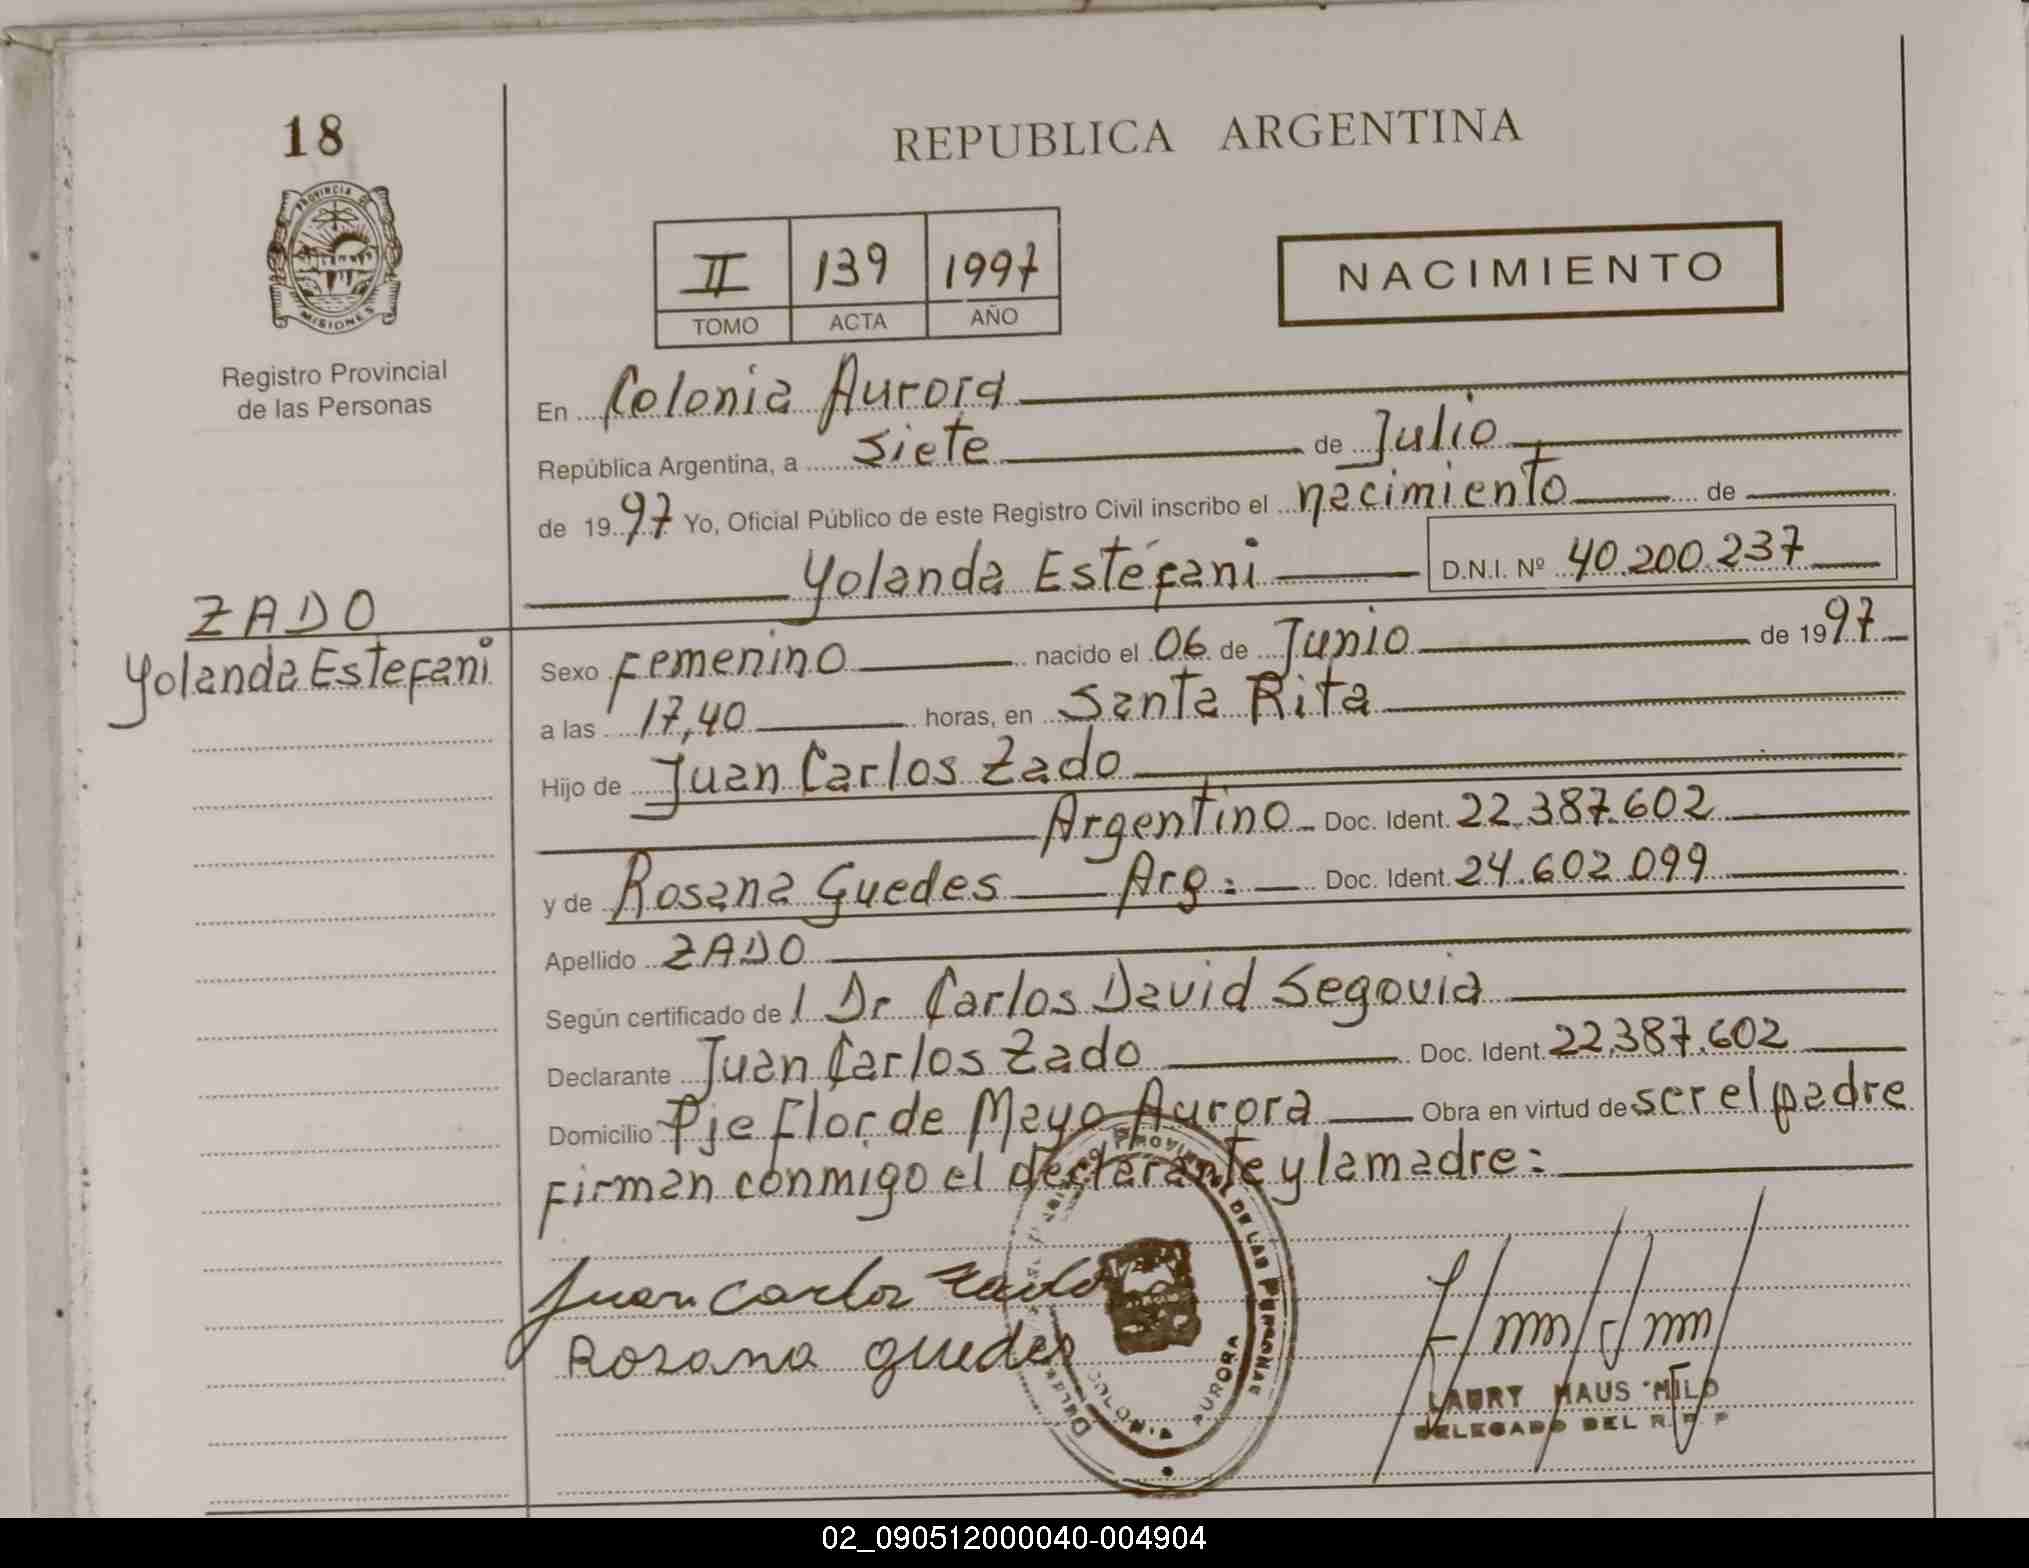 18
PROVINCIA DE
MISIONES
Registro Provincial
de las Personas
REPUBLICA ARGENTINA
II 139 1997
TOMO ACTA AÑO
NACIMIENTO
En Colonia Aurora
República Argentina, a siete de Julio
de 1997 Yo, Oficial Público de este Registro Civil inscribo el nacimiento de
Yolanda Estéfani D.N.I. Nº 40.200.237
ZADO
Yolanda Estefani
Sexo Femenino nacido el 06 de Junio de 1997
a las 17,40 horas, en Santa Rita
Hijo de Juan Carlos Zado
Argentino Doc. Ident. 22.387.602
y de Rosana Guedes Arg: Doc. Ident. 24.602.099
Apellido ZADO
Según certificado del Dr Carlos David Segovia
Declarante Juan Carlos Zado Doc. Ident. 22.387.602
Domicilio Pje Flor de Mayo Aurora Obra en virtud de ser el padre
firman conmigo el declarante y la madre:
Juan Carlos Zado
Rosana guedes
DE LAS PERSONAS
COLONIA AURORA
LAURY HAUS MILO
DELEGADO DEL R. P. P
02_090512000040-004904